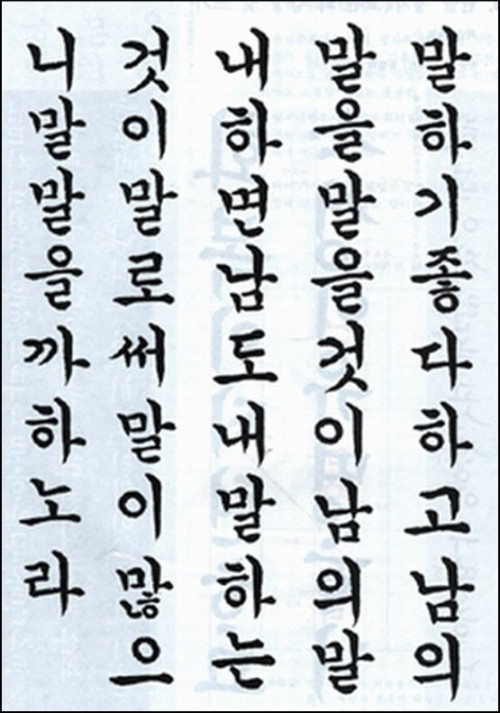 말하기좋다하고남의
말을말을것이남의말
내하면남도내말하는
것이말로써말이많으
니말말을까하노라